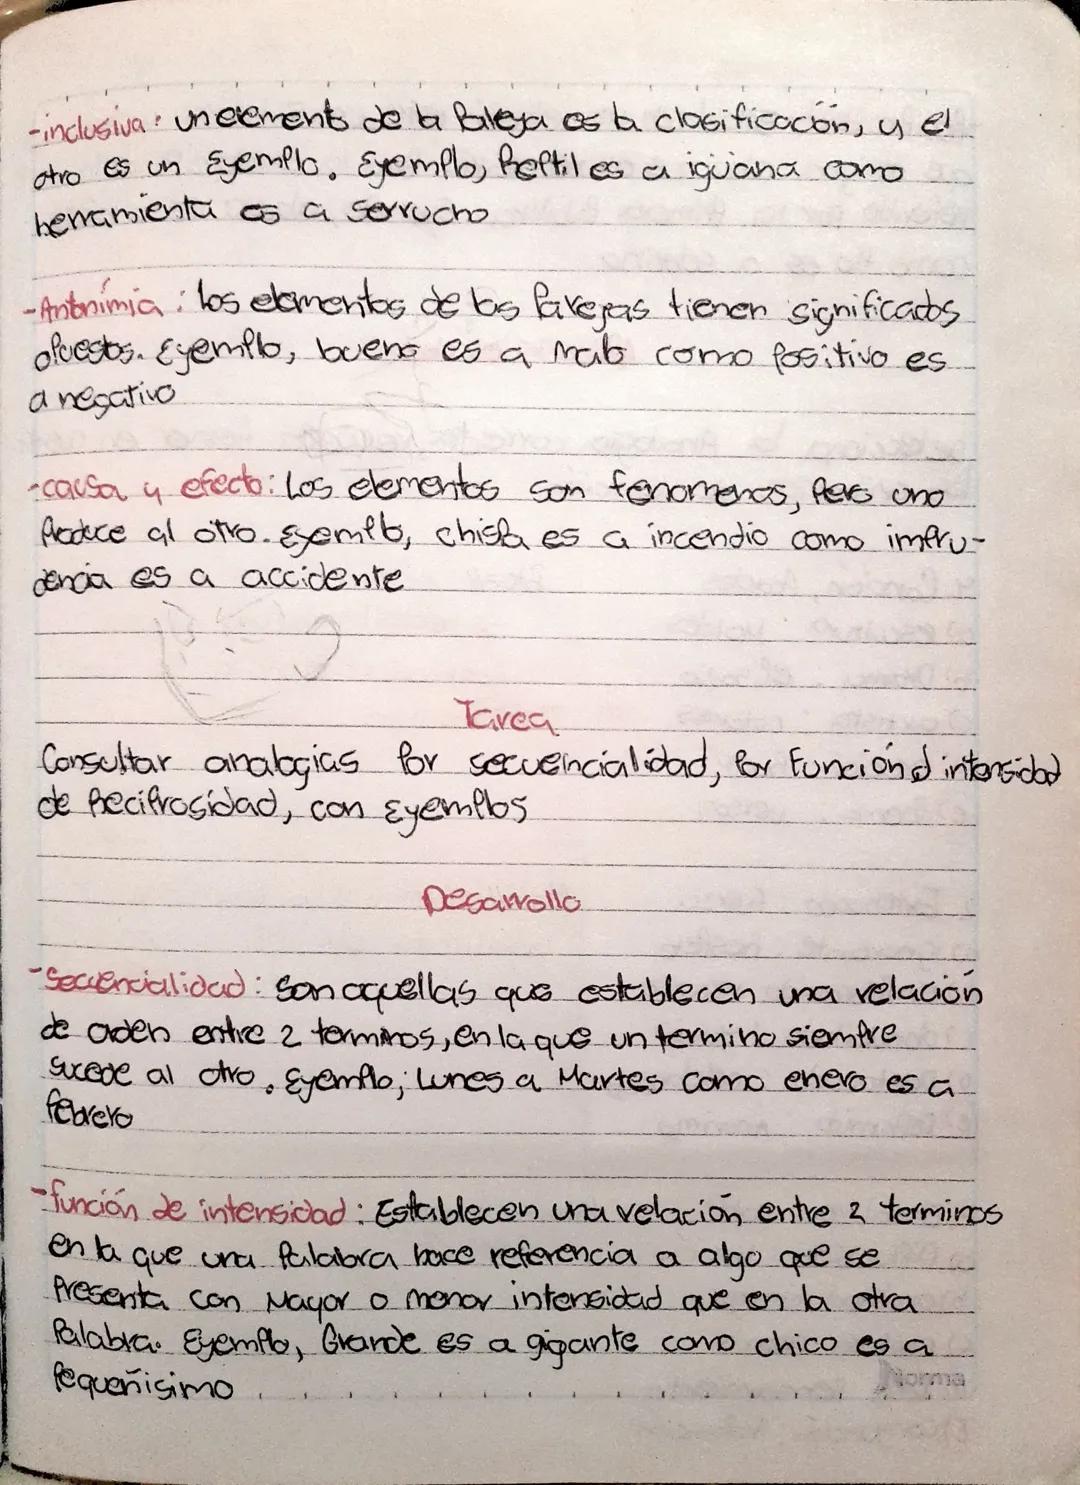 -inclusiva: un elemento de la Pareja es la clasificación, y el
otro es un Ejemplo. Ejemplo, Reptil es a iguana como
herramienta es a serrucho
-Antonimia: los elementos de las Parejas tienen significados
opuestos. Ejemplo, bueno es a malo como positivo es
a negativo
-causa y efecto: Los elementos son fenomenos, pero uno
Produce al otro. Ejemplo, chispa es a incendio como impru-
dencia es a accidente
Tarea
Consultar analogias Por secuencialidad, Por Función d intensidad
de Reciprosidad, con Ejemplos
Desarrollo
-Secuencialidad: Son aquellas que establecen una relación
de orden entre 2 terminos, en la que un termino siempre
sucede al otro. Ejemplo, Lunes a Martes como enero es a
febrero
-función de intensidad: Establecen una relación entre 2 terminos
en la que una Palabra hace referencia a algo que se
Presenta con Mayor o menor intensidad que en la otra
Palabra. Ejemplo, Grande es a gigante como chico es a
Pequeñisimo
Norma